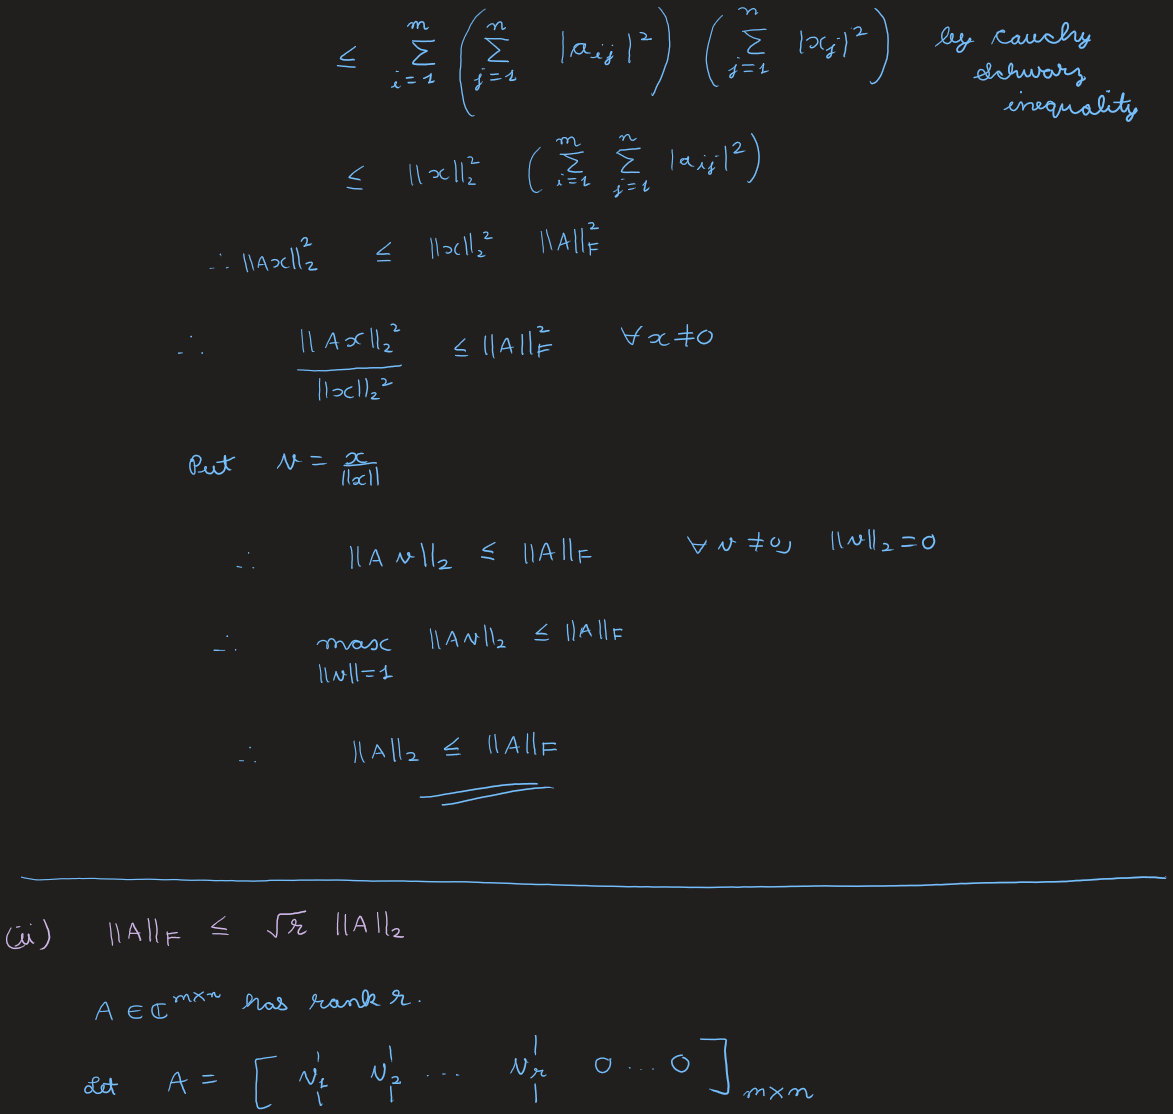 ≤ \sum_{i=1}^{m} ( \sum_{j=1}^{n} |a_{ij}|^2 ) ( \sum_{j=1}^{n} |x_j|^2 ) by cauchy
schwarz
inequality
≤ ||x||_2^2 ( \sum_{i=1}^{m} \sum_{j=1}^{n} |a_{ij}|^2 )
∴ ||Ax||_2^2 ≤ ||x||_2^2 ||A||_F^2
∴ \frac{||Ax||_2^2}{||x||_2^2} ≤ ||A||_F^2 ∀ x ≠ 0
Put v = \frac{x}{||x||}
∴ ||A v||_2 ≤ ||A||_F ∀ v ≠ 0, ||v||_2 = 0
∴ max_{||v||=1} ||Av||_2 ≤ ||A||_F
∴ ||A||_2 ≤ ||A||_F
(ii) ||A||_F ≤ √r ||A||_2
A ∈ ℂ^{m×n} has rank r.
Let A = [ v_1 v_2 ... v_r 0 ... 0 ]_{m×n}